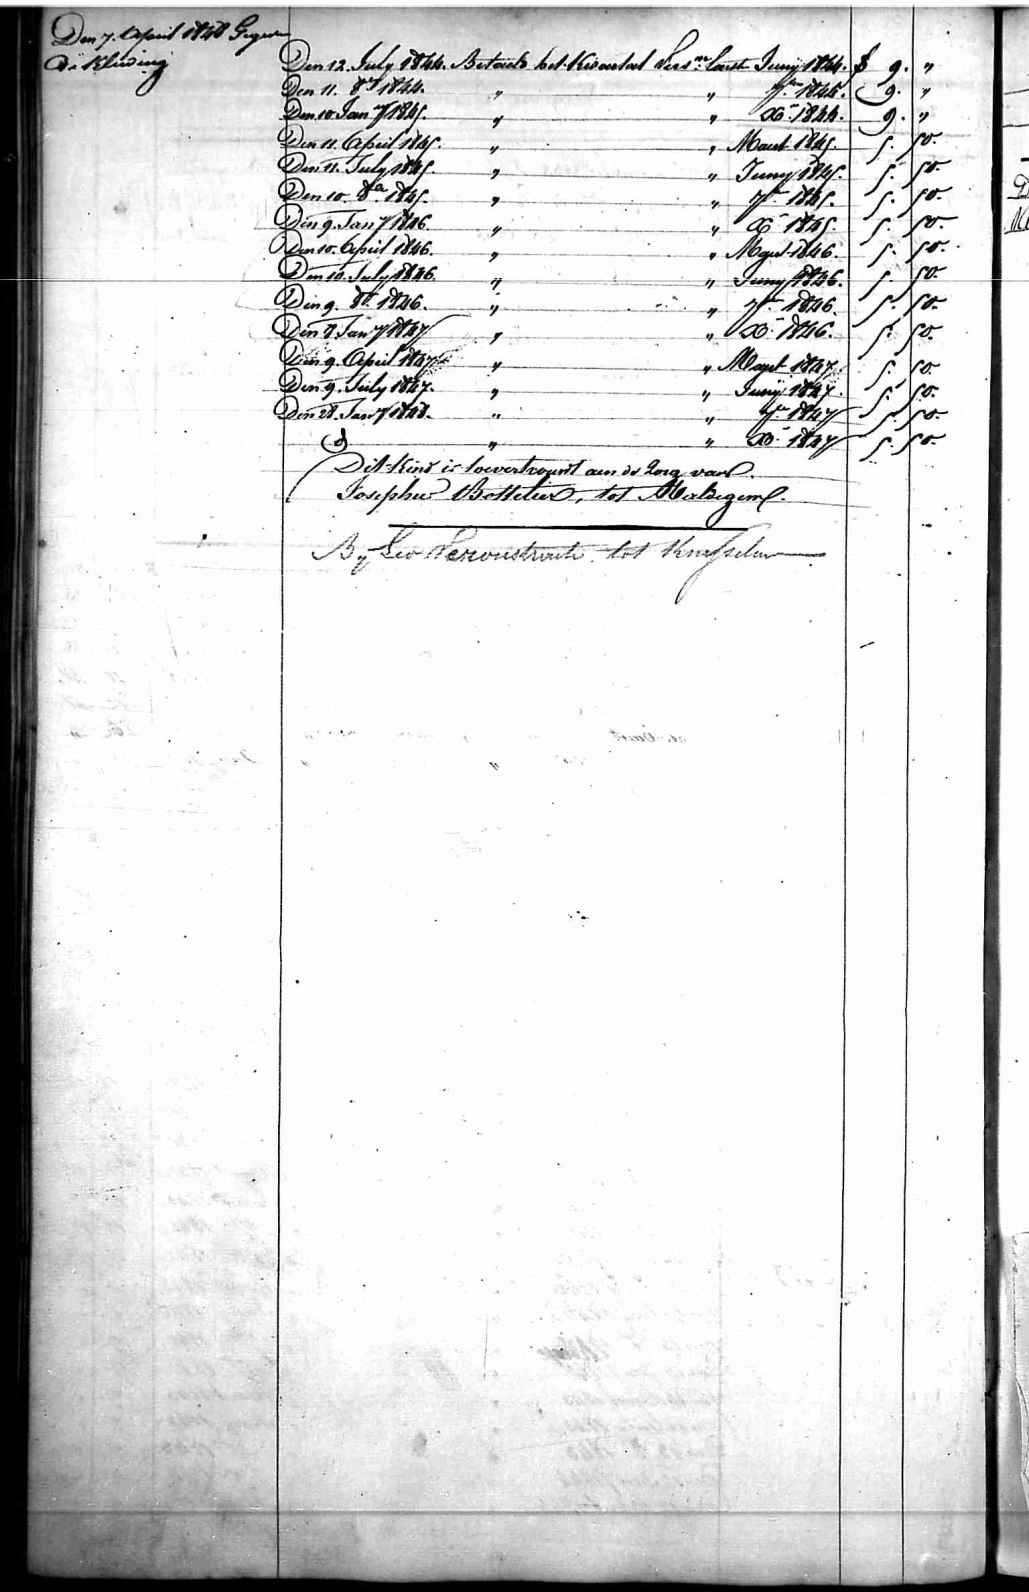 Den 7. April 1848 Gegeven
de Kleeding
Den 12. July 1844. Betaald het Kwartaal Verss.en laast Juny 1844. f 9. "
Den 11. 8br 1844. " " 7br 1844. 9. "
Den 10 Jany 1845. " " Xbr 1844. 9. "
Den 11. April 1845. " " Maart 1845. 5. 50.
Den 11. July 1845. " " Juny 1845. 5. 50.
Den 10. 8br 1845. " " 7br 1845. 5. 50.
Den 9. Jany 1846. " " Xbr 1845. 5. 50.
Den 10. April 1846. " " Maart 1846. 5. 50.
Den 10. July 1846. " " Juny 1846. 5. 50.
Den 9. 8br 1846. " " 7br 1846. 5. 50.
Den 8 Jany 1847 " " Xbr 1846. 5. 50.
Den 9. April 1847. " " Maart 1847. 5. 50.
Den 9. July 1847. " " Juny 1847. 5. 50.
Den 28. Jany 1848. " " 7br 1847 5. 50.
d " " Xbr 1847 5. 50.
Dit Kind is toevertrouwt aen de Zorg van
Josephus Bottelier, tot Maldegem.
By Leo tot Knesselare